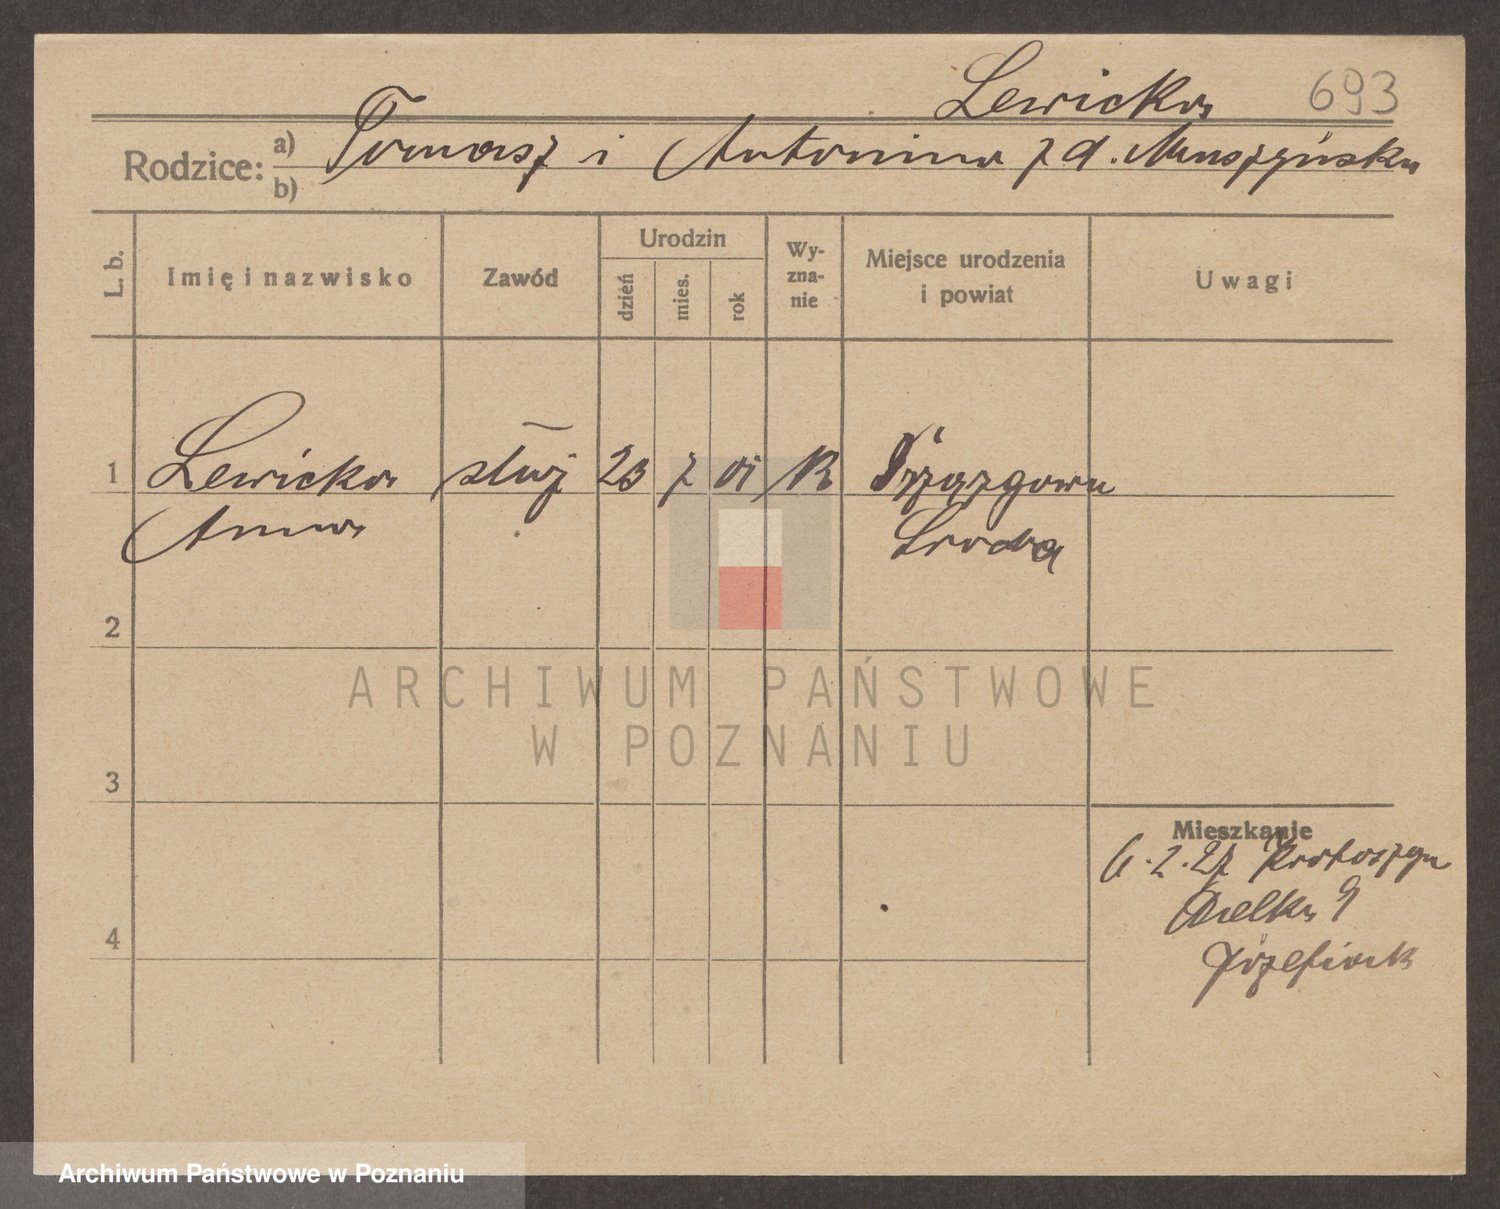 Lewicka 693
Rodzice: a) b) Tomasz i Antonina z d. Muszyńska
L. b.
Imię i nazwisko
Zawód
Urodzin
dzień mies. rok
Wy-
zna-
nie
Miejsce urodzenia
i powiat
Uwagi
1 Lewicka służ 23 7 01 K
Anna Środa
2
3
4
Mieszkanie
6.2.27 Krotoszyn
9
Józefiak
ARCHIWUM PAŃSTWOWE
W POZNANIU
Archiwum Państwowe w Poznaniu